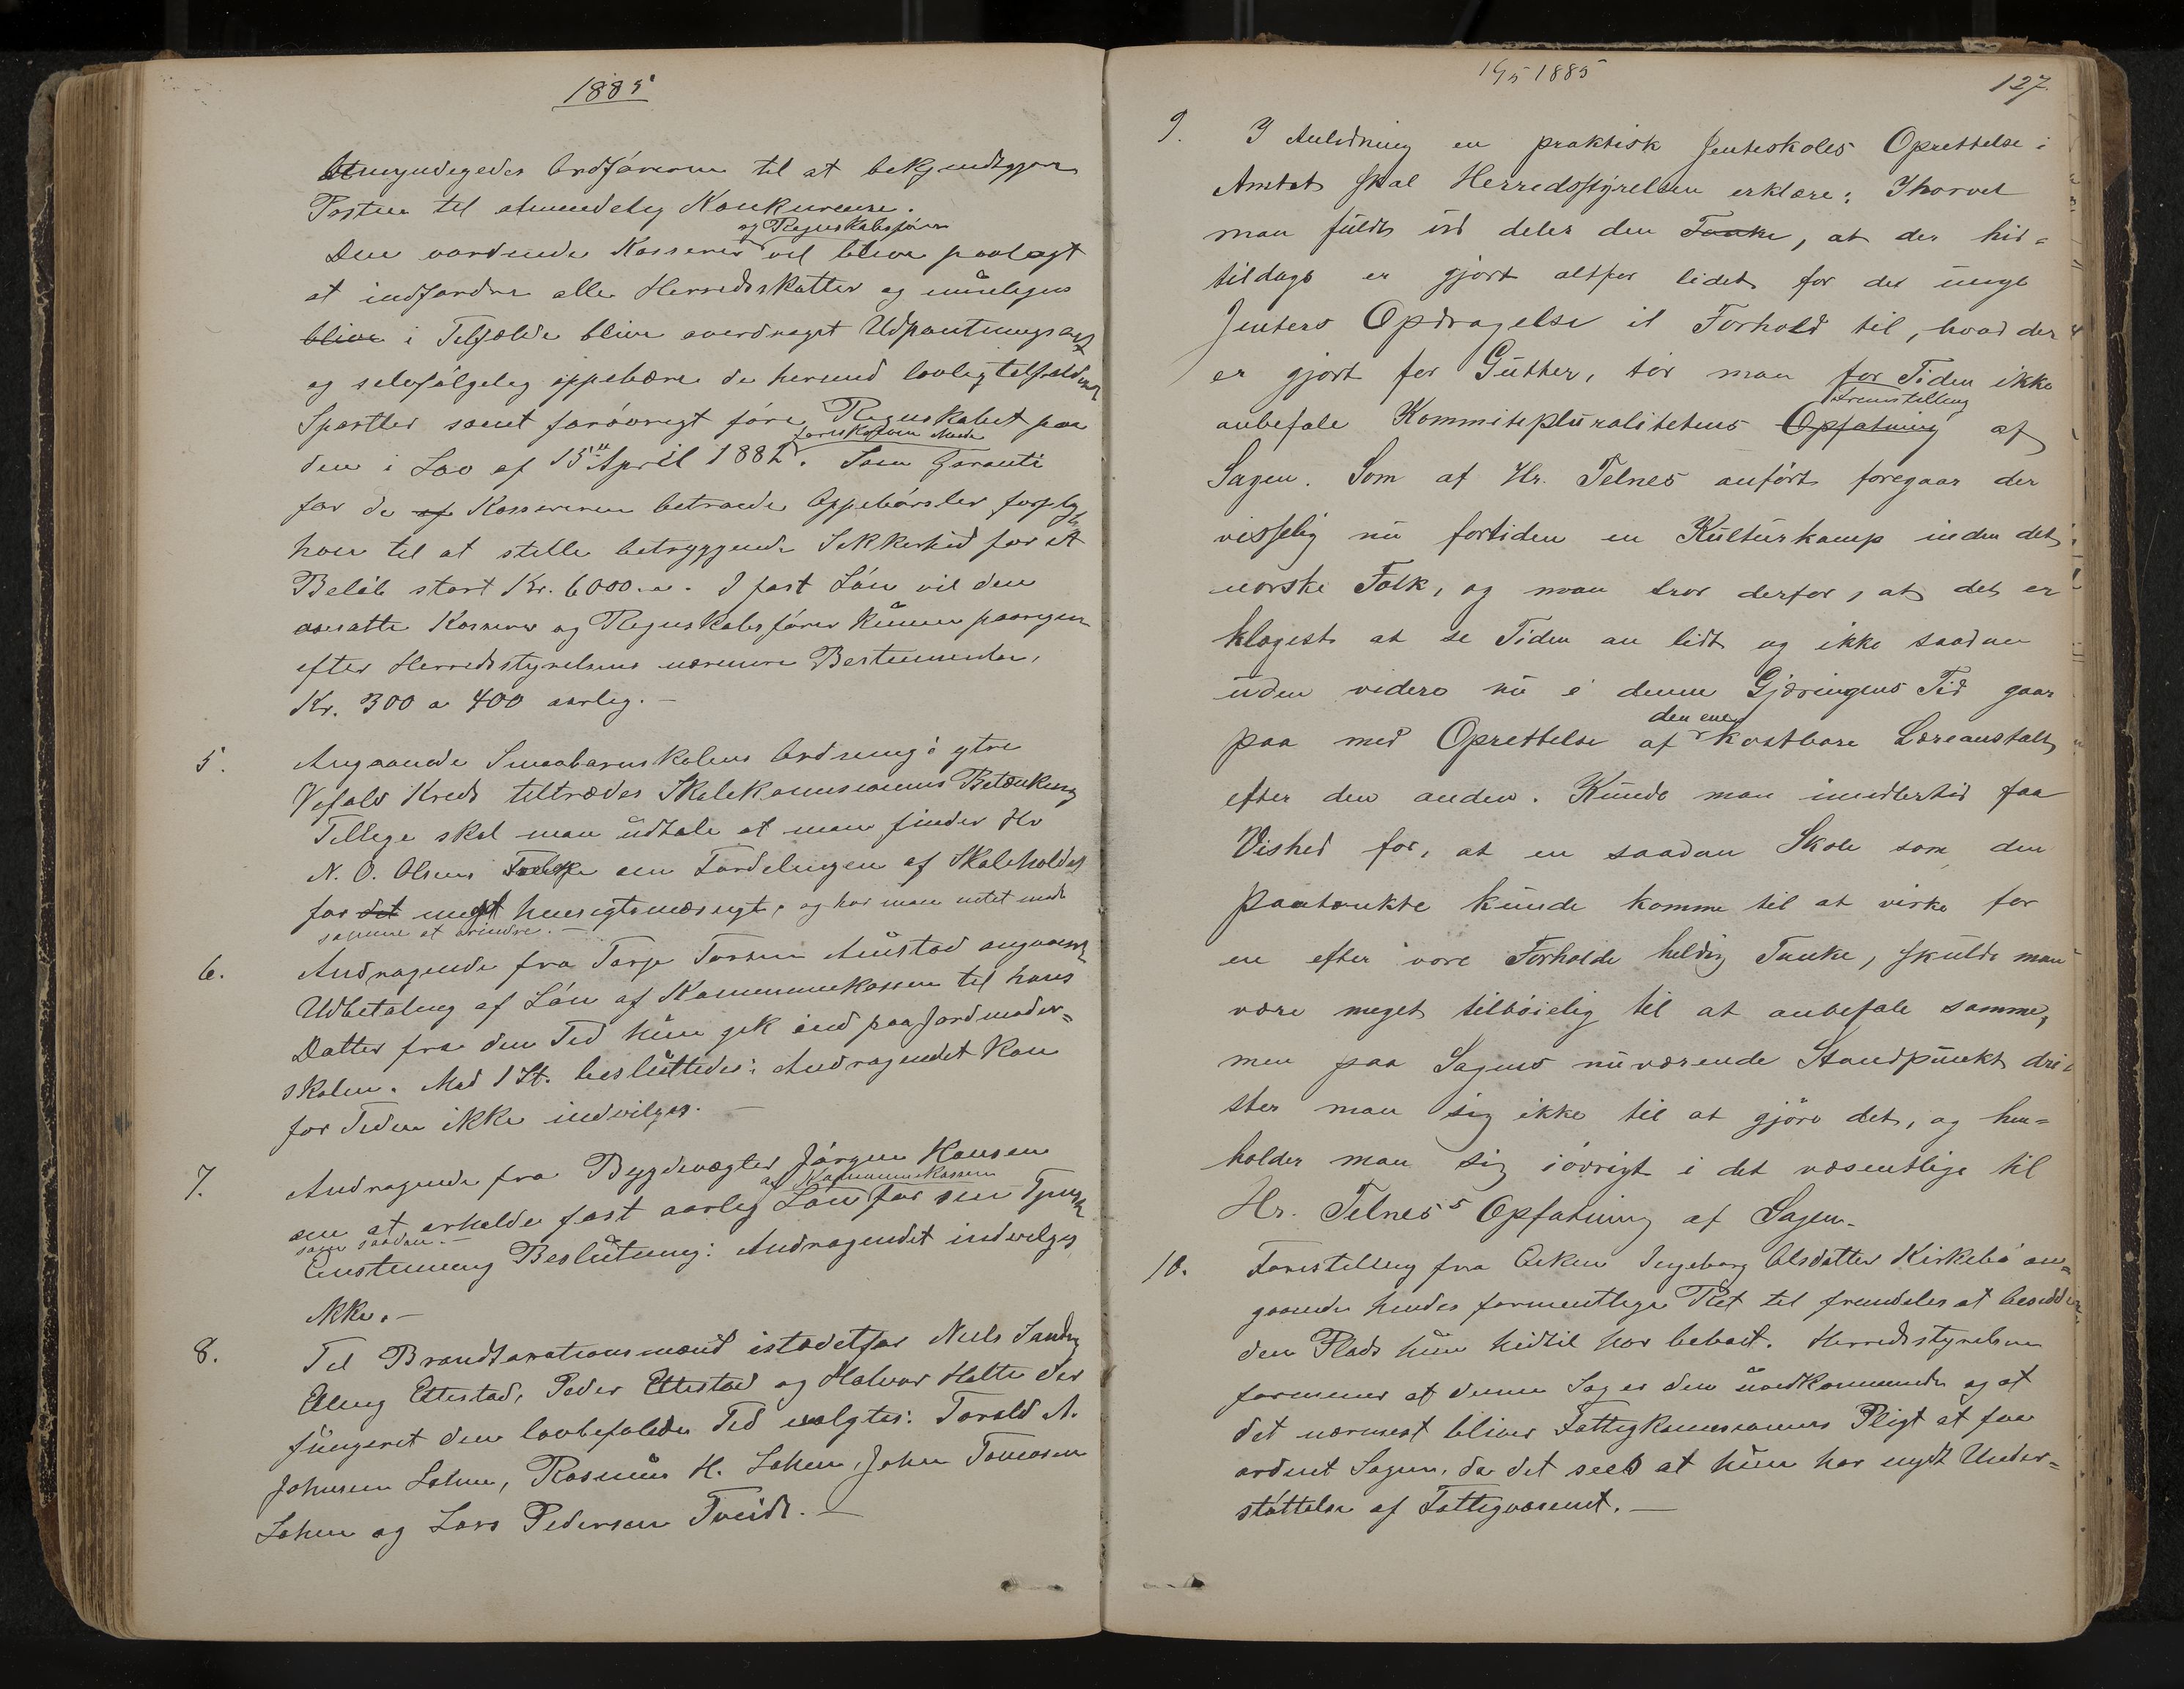 1885
bemyndigedes Ordføreren til at bekjendtgjøre
Posten til almindelig Konkurense.
og Regnskabsfører
Den vordende Kasserer vil blive paalagt
at indfordre alle Herredsskatter og
blive i Tilfælde blive overdraget Udpantnings
og selvfølgelig oppebære de hermed lovlig tilfaldende
Sportler samt forøvrigt føre Regnskabet paa
foreskrevne Maade
den i Lov af 15de April 1882. Som Garanti
for de af Kassereren betroede Oppebørsler forpligtes
han til at stille betryggende Sikkerhed for et
Beløb stort Kr. 6000.00. I fast Løn vil den
ansatte Kasserer og Regnskabsfører kunne paaregne
efter Herredsstyrelsens nærmere Bestemmelse,
Kr. 300 a 400 aarlig. —
5. Angaaende Smaabarnskolens Ordning i ytre
Vefald Kreds tiltrædes Skolekommissionens Betænkning
Tillige skal man udtale at man finder Hr
N. O. Olsens om Fordelingen af Skoleholdet
for det meget hensigtsmæssigt, og har man intet mod
samme at erindre. —
6. Andragende fra Tarje Austad angaaende
Udbetaling af Løn af Kommunekassen til hans
Datter fra den Tid hun gik ind paa Jordmoder=
skolen. Mod 1 St. besluttedes: Andragendet kan
for Tiden ikke indvilges. —
7. Andragende fra Bygdevægter Jørgen Hansen
af Kommunekassen
om at erholde fast aarlig Løn for sin Tjeneste
som saadan. —
Enstemmig Beslutning: Andragendet indvilges
ikke. —
8. Til Brandtaxationsmænd istedetfor Niels Sandø
Elling Ettestad, Peder Ettestad og Halvor Holte der
fungeret den lovbefalede Tid valgtes: Torald A.
Johnsen Lohne, Rasmus H. Lohne, John Tomasen
Lohne og Lars Pedersen Tveidt. —
19/5 1885
127.
9. I Anledning en praktisk Jenteskoles Oprettelse i
Amtet skal Herredsstyrelsen erklære: Ihvorvel
man fuldt ud deler den Tanke, at der hid=
tildags er gjort altfor lidet for de unge
Jenters Opdragelse i Forhold til, hvad der
er gjort for Gutter, tør man for Tiden ikke
Fremstilling
anbefale Kommitepluralitetens Opfatning af
Sagen. Som af Hr. Telnes anført foregaar der
visselig nu fortiden en Kulturkamp inden det
norske Folk, og man tror derfor, at det er
klogest at se Tiden an lidt og ikke saadan
uden videre nu i denne Gjæringens Tid gaar
den ene
paa med Oprettelse af kostbare Læreanstalt
efter den anden. Kunde man imidlertid faa
Vished for, at en saadan Skole som den
paatænkte kunde komme til at virke for
en efter vore Forholde heldig Tanke, skulde man
være meget tilbøielig til at anbefale samme,
men paa Sagens nuværende Standpunkt dri=
ster man sig ikke til at gjøre det, og hen=
holder man sig iøvrigt i det væsentlige til
Hr. Telnes's Opfatning af Sagen.
10. Forestilling fra Enken Ingeborg Olsdatter Kirkebø an=
gaaende hendes formentlige Ret til fremdeles at besidde
den Plads hun hidtil har beboet. Herredsstyrelsen
formener at denne Sag er den uvedkommende og at
det nærmest bliver Fattigkommissionens Pligt at faa
ordnet Sagen, da det sees at hun har nydt Under=
støttelse af Fattigvæsenet. —